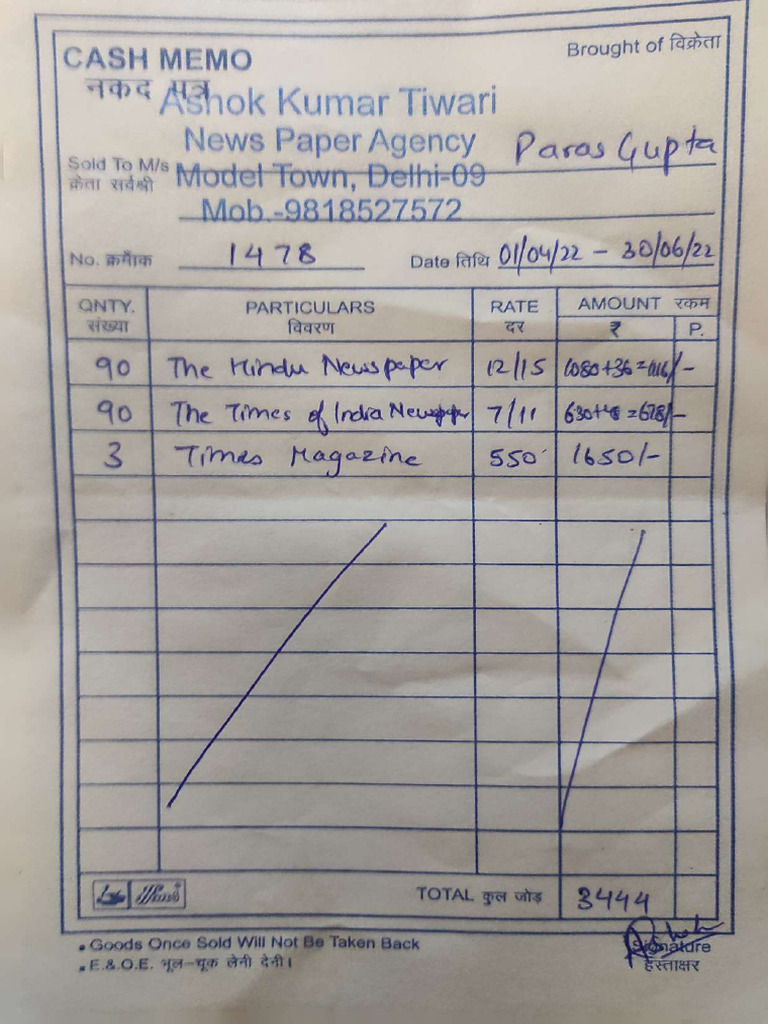 CASH MEMO
Brought of विक्रेता
नकद पत्र
Ashok Kumar Tiwari
News Paper Agency
Paras Gupta
Sold To M/s
क्रेता सर्वश्री
Model Town, Delhi-09
Mob.-9818527572
No. क्रमाँक 1478 Date तिथि 01/04/22 - 30/06/22
QNTY. PARTICULARS RATE AMOUNT रकम
संख्या विवरण दर ₹ P.
90 The Hindu Newspaper 12/15 1080+36=1116/-
90 The Times of India Newspaper 7/11 630+48=678/-
3 Times Magazine 550 1650/-
TOTAL कुल जोड़ 3444
• Goods Once Sold Will Not Be Taken Back
Signature
• E.&O.E. भूल-चूक लेनी देनी।
हस्ताक्षर